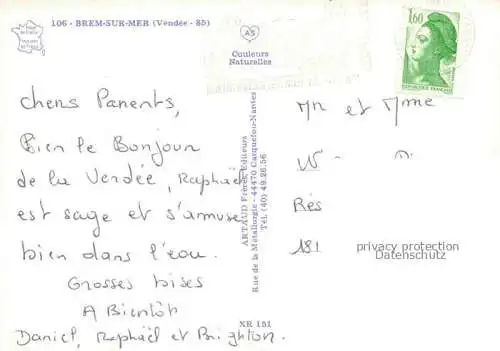 106 - BREM-SUR-MER (Vendée - 85)
AS
Couleurs
Naturelles
1,60
REPUBLIQUE FRANÇAISE
Chers Parents,
Bien le Bonjour
de la Vendée, Raphaël
est sage et s'amuse
bien dans l'eau.
Grosses bises
A Bientôt
Daniel, Raphaël et Brighton.
ARTAUD Frères Editeurs
Rue de la Métallurgie - 44470 Carquefou-Nantes
Tél. (40) 49.26.56
XR 151
Mr et Mme
Rés
181
privacy protection
Datenschutz